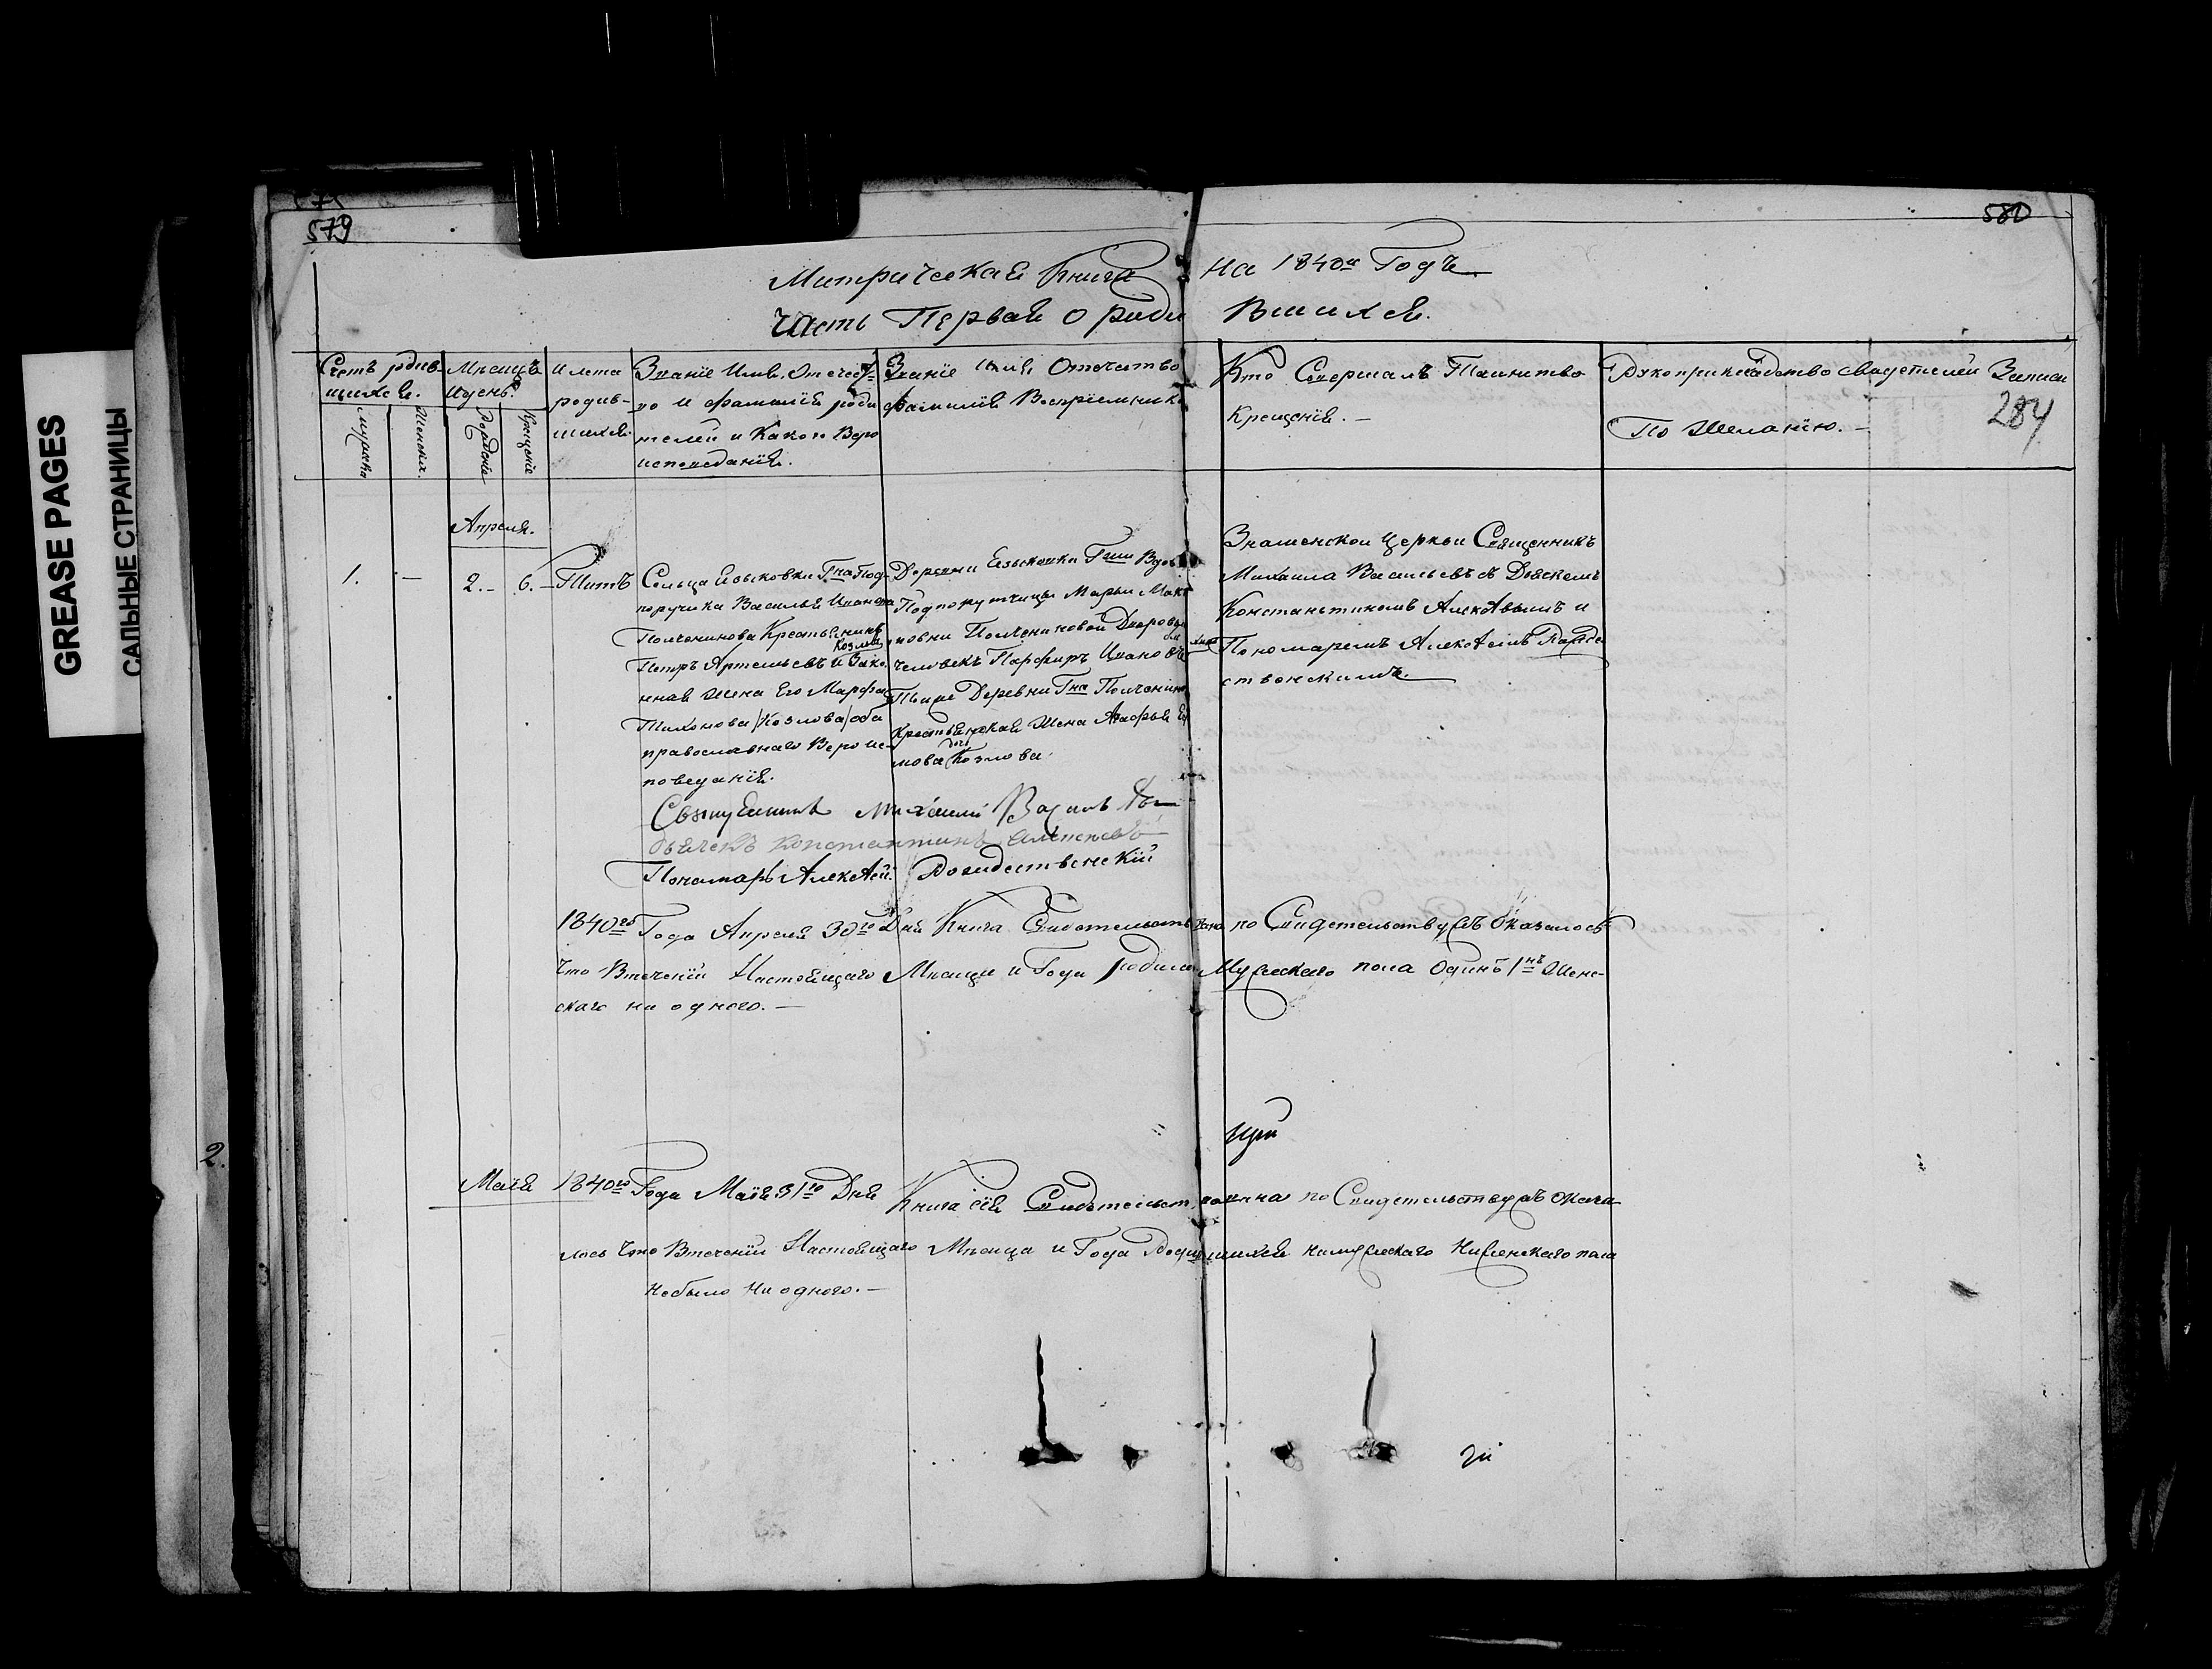 GREASE PAGES
САЛЬНЫЕ СТРАНИЦЫ
579
580
Митрическая Книга на 1840й Годъ
Часть Первая О родившихся.
Счетъ родив-
шихся.
Мужска
Женска.
Мѣсяцъ
и день.
Рождение
Крещение
Имена
родив-
шихся.
Званїе Имя. Отечест-
во и фамилїя роди
телей и Какого Веро
исповеданїя.
Званїе Имя Отечество
фамилїя Воспрїемниковъ
Кто Совершалъ Таинство
Крещенїя. —
Рукоприкладство свидетелей Записи
По Желанїю. —
284
Апреля.
1. — 2. — 6. — Титъ
Сельца Языковки Гна Под-
поручика Василья Иванова
Полченинова Крестьянинъ
Козловъ
Петръ Артемьевъ и Зако-
нная жена Его Марфа
Тихонова /Козлова/ оба
православнаго Вероис-
поведанїя.
Деревни Езыковки Гжи Вдов
Подпорутчицы Марьи Мак
мовны Полчениновой Дворов
человекъ Парфиръ Ивановъ
Тоиже Деревни Гна Полченино
Крестьянская Жена Агафья
мова Козлова.
Знаменской Церкви Священникъ
Михаила Васильевъ съ Дьячкомъ
Константиномъ Алексѣвымъ и
Пономаремъ Алексѣемъ Ражде-
ственскимъ.
Священникъ Михаилъ Васильевъ
Дьячекъ Константинъ Алексеевъ
Пономарь Алексѣй Рождественскїй
1840го Года Апреля 30го Дня Книга Свидетельствована по Свидетельству съ Оказалось
что Втеченїи Настоящаго Мѣсяца и Года родилось Мужескаго пола Одинъ 1нъ Жен-
скаго ни одного. —
Маїя 1840го Года Маїя 31го Дня Книга сїя Свидѣтельствованна по Свидетельству съ Оказа-
лось что Втеченїи Настоящаго Мѣсяца и Года Родившихся ни мужескаго Ни женскаго пола
не было ни одного. —
2.